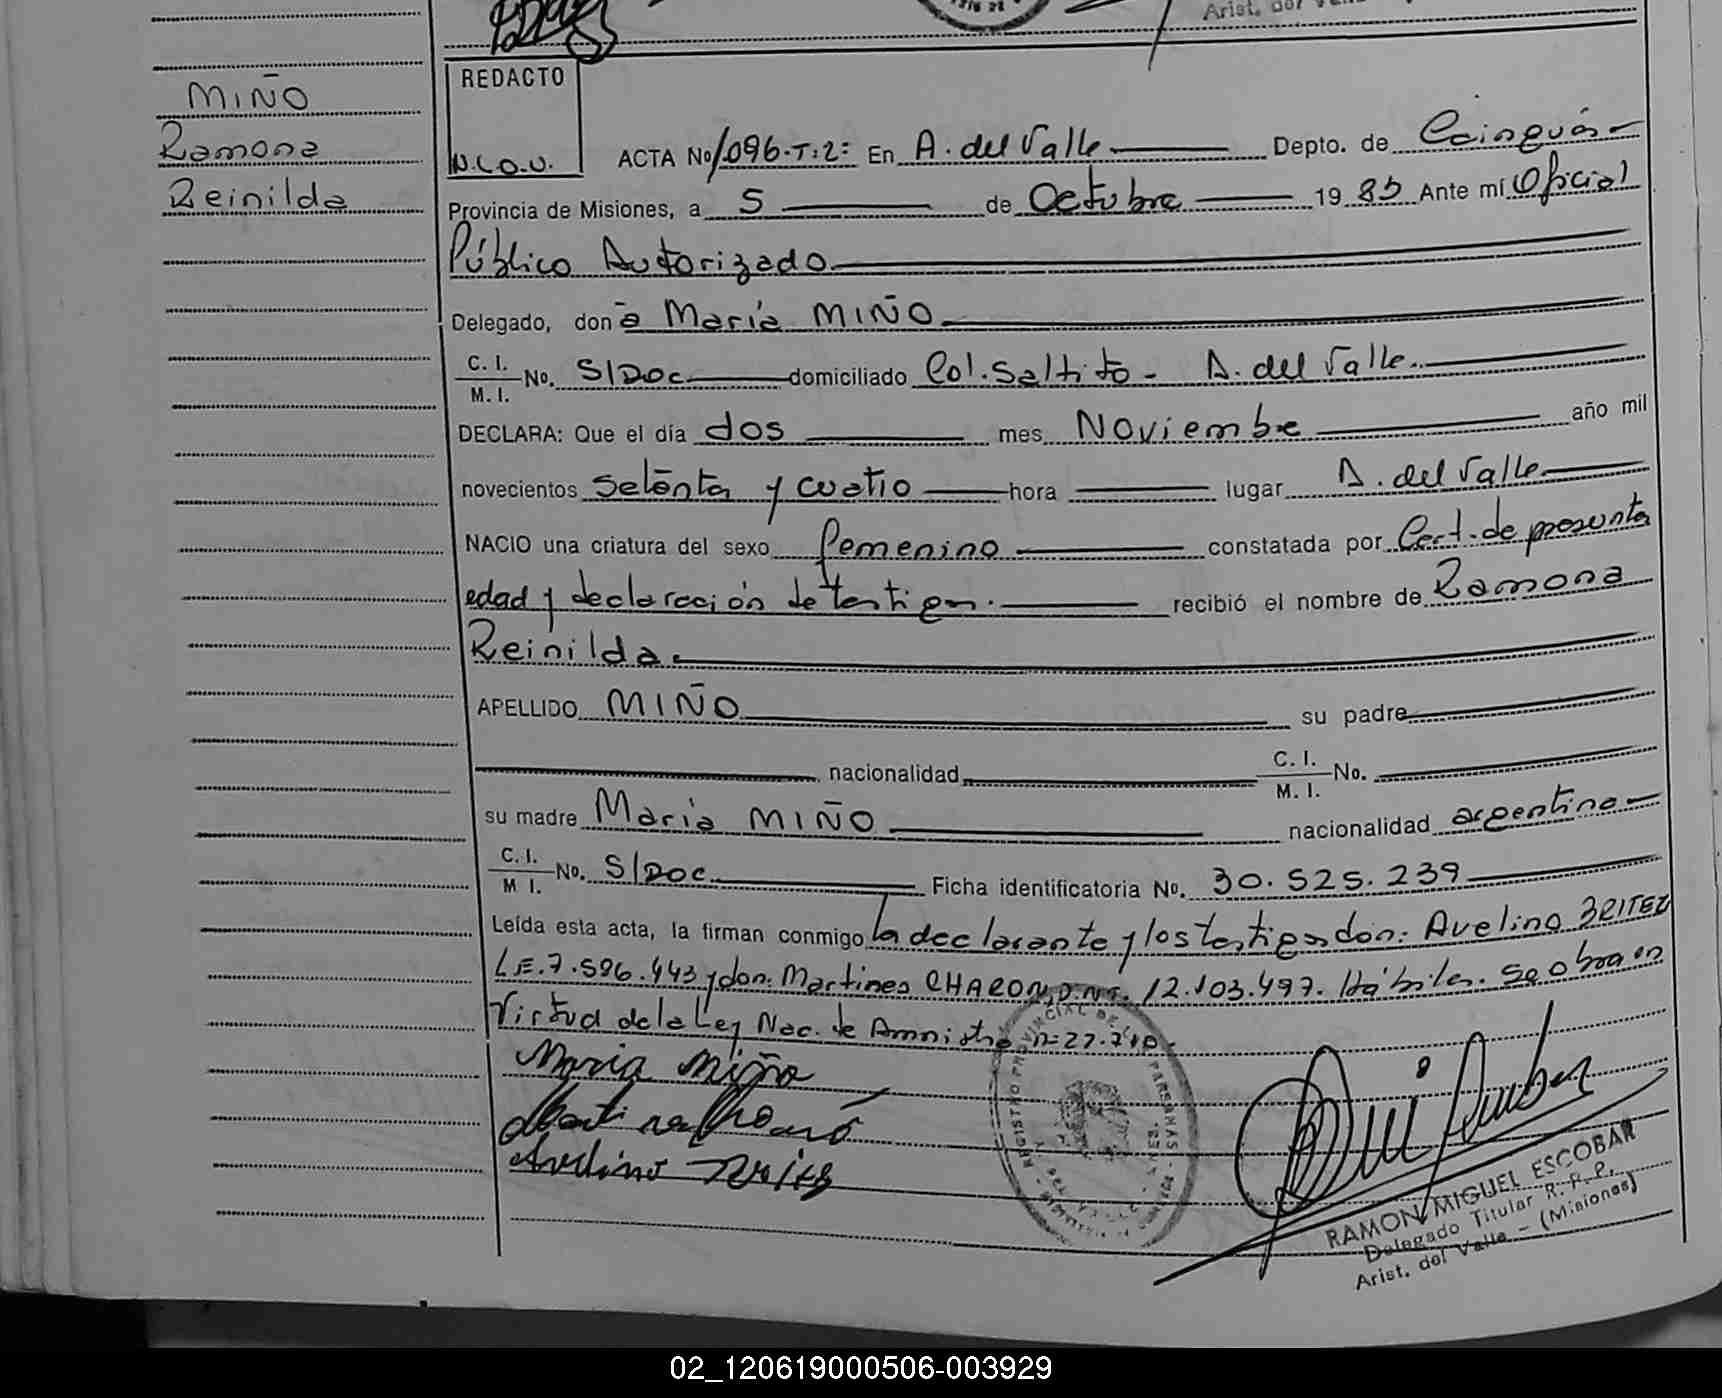 Arist. del
MIÑO
Ramona
Reinilda
REDACTO
N.L.O.V.
ACTA Nº 1096.T:2: En A. del Valle Depto. de Cainguás
Provincia de Misiones, a 5 de Octubre 1985 Ante mí Oficial
Público Autorizado
Delegado, don a María MIÑO
C. I. / M. I. No. S/Doc domiciliado Col. Saltito - A. del Valle.
DECLARA: Que el día dos mes Noviembre año mil
novecientos setenta y cuatro hora lugar A. del Valle
NACIO una criatura del sexo femenino constatada por Cert. de presunta
edad y declaración de testigos. recibió el nombre de Ramona
Reinilda.
APELLIDO MIÑO su padre
nacionalidad C. I. / M. I. No.
su madre María MIÑO nacionalidad argentina
C. I. / M I. No. S/Doc Ficha identificatoria Nº. 30.525.239
Leída esta acta, la firman conmigo la declarante y los testigos don: Avelino BRITEZ
L.E. 7.586.443 y don: Martines CHARON, D.N.I. 12.103.497. Hábiles. Se obra en
Virtud de la Ley Nac. de Amnistía nº 22.710.
Maria Miño
Avelino
REGISTRO PROVINCIAL DE LAS PERSONAS
RAMON MIGUEL ESCOBAR
Delegado Titular R. P. P.
Arist. del Valle - (Misiones)
02_120619000506-003929